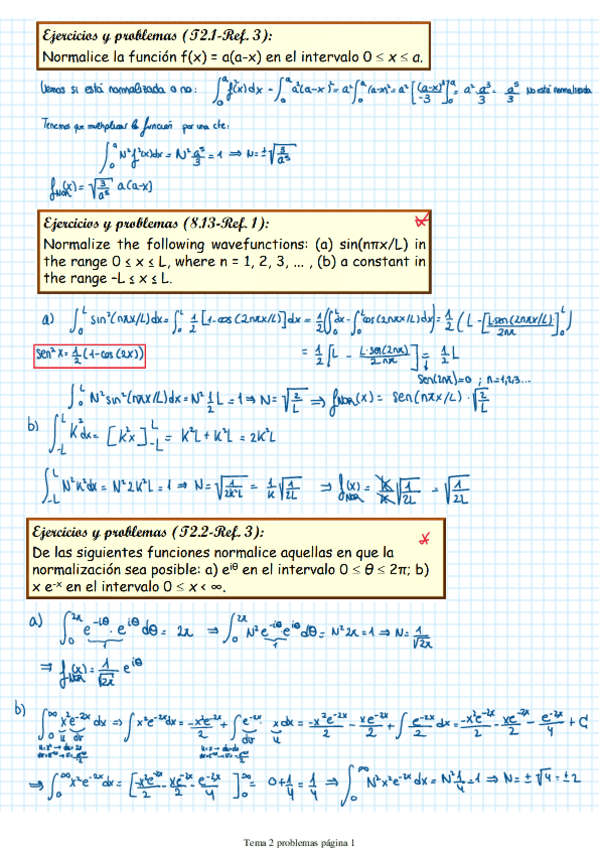 Ejercicios y problemas (T2.1-Ref. 3):
Normalice la función f(x) = a(a-x) en el intervalo 0 ≤ x ≤ a.
Vemos si está normalizada o no: ∫₀ᵃ f²(x)dx = ∫₀ᵃ a²(a-x)² = a² ∫₀ᵃ (a-x)² = a² [(a-x)³/-3]₀ᵃ = a² a³/3 = a⁵/3 No está normalizada
Tenemos que multiplicar la función por una cte:
∫₀ᵃ N²f²(x)dx = N² a⁵/3 = 1 ⇒ N = ±√(3/a⁵)
f_NOR(x) = √(3/a⁵) a(a-x)
Ejercicios y problemas (8.13-Ref. 1):
Normalize the following wavefunctions: (a) sin(nπx/L) in
the range 0 ≤ x ≤ L, where n = 1, 2, 3, ... , (b) a constant in
the range -L ≤ x ≤ L.
a) ∫₀ᴸ sin²(nπx/L)dx = ∫₀ᴸ 1/2 [1-cos(2nπx/L)]dx = 1/2 (∫₀ᴸ dx - ∫₀ᴸ cos(2nπx/L)dx) = 1/2 (L - [L sen(2nπx/L)/2nπ]₀ᴸ)
sen²x = 1/2 (1-cos(2x))
= 1/2 [L - L·sen(2nπ)/2nπ] = 1/2 L
sen(2nπ)=0 ; n=1,2,3...
∫₀ᴸ N² sin²(nπx/L)dx = N² 1/2 L = 1 ⇒ N = √(2/L) ⇒ f_NOR(x) = sen(nπx/L) · √(2/L)
b) ∫₋ₗᴸ K²dx = [K²x]₋ₗᴸ = K²L + K²L = 2K²L
∫₋ₗᴸ N²K²dx = N² 2K²L = 1 ⇒ N = √(1/2K²L) = 1/K √(1/2L) ⇒ f_NOR(x) = K/K √(1/2L) = √(1/2L)
Ejercicios y problemas (T2.2-Ref. 3):
De las siguientes funciones normalice aquellas en que la
normalización sea posible: a) e^iθ en el intervalo 0 ≤ θ ≤ 2π; b)
x e^-x en el intervalo 0 ≤ x < ∞.
a) ∫₀²π e^-iθ · e^iθ dθ = 2π ⇒ ∫₀²π N² e^-iθ e^iθ dθ = N² 2π = 1 ⇒ N = 1/√2π
⇒ f_NOR(x) = 1/√2π e^iθ
b) ∫₀^∞ x²e^-2x dx ⇒ ∫ x²e^-2x dx = -x²e^-2x/2 + ∫ e^-2x x dx = -x²e^-2x/2 - xe^-2x/2 + ∫ e^-2x/2 dx = -x²e^-2x/2 - xe^-2x/2 - e^-2x/4 + C
⇒ ∫₀^∞ x²e^-2x dx = [-x²e^-2x/2 - xe^-2x/2 - e^-2x/4]₀^∞ = 0 + 1/4 = 1/4 ⇒ ∫₀^∞ N²x²e^-2x dx = N² 1/4 = 1 ⇒ N = ±√4 = ±2
Tema 2 problemas página 1